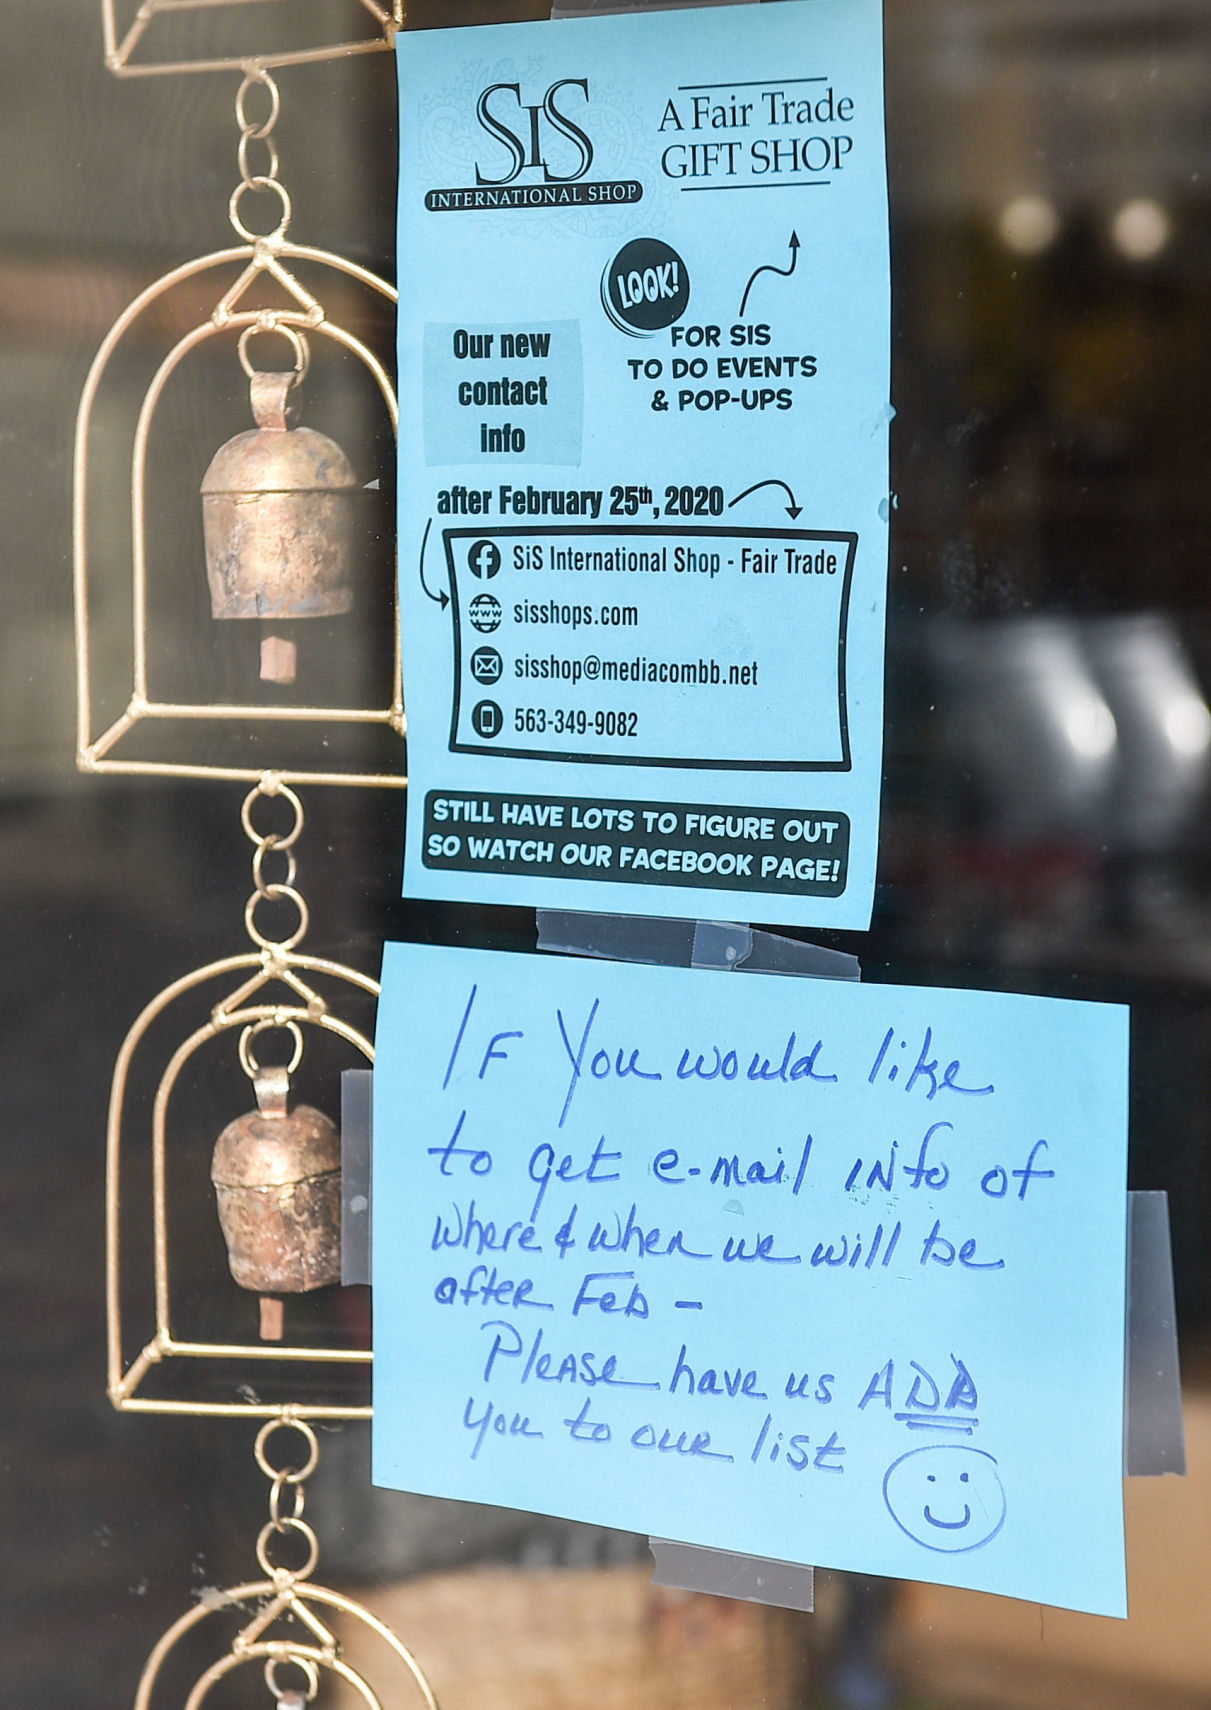 SiS
INTERNATIONAL SHOP
A Fair Trade
GIFT SHOP
LOOK!
FOR SIS
TO DO EVENTS
& POP-UPS
Our new
contact
info
after February 25th, 2020
f SiS International Shop - Fair Trade
www sisshops.com
sisshop@mediacombb.net
563-349-9082
STILL HAVE LOTS TO FIGURE OUT
SO WATCH OUR FACEBOOK PAGE!
IF You would like
to get e-mail iNfo of
where & when we will be
after Feb -
Please have us ADD
you to our list